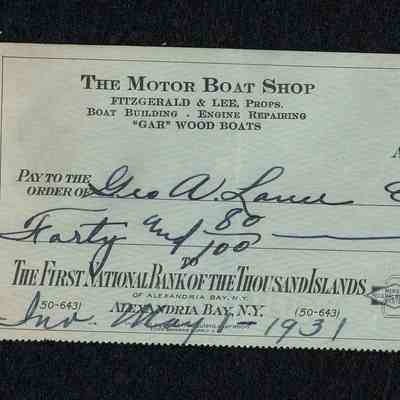 THE MOTOR BOAT SHOP
FITZGERALD & LEE, PROPS.
BOAT BUILDING - ENGINE REPAIRING
"GAR" WOOD BOATS
A
PAY TO THE
ORDER OF Geo A. Lance
Forty and 80/100
TO
THE FIRST NATIONAL BANK OF THE THOUSAND ISLANDS
OF ALEXANDRIA BAY, N.Y.
(50-643) ALEXANDRIA BAY, N.Y. (50-643)
Inv. May 1 - 1931